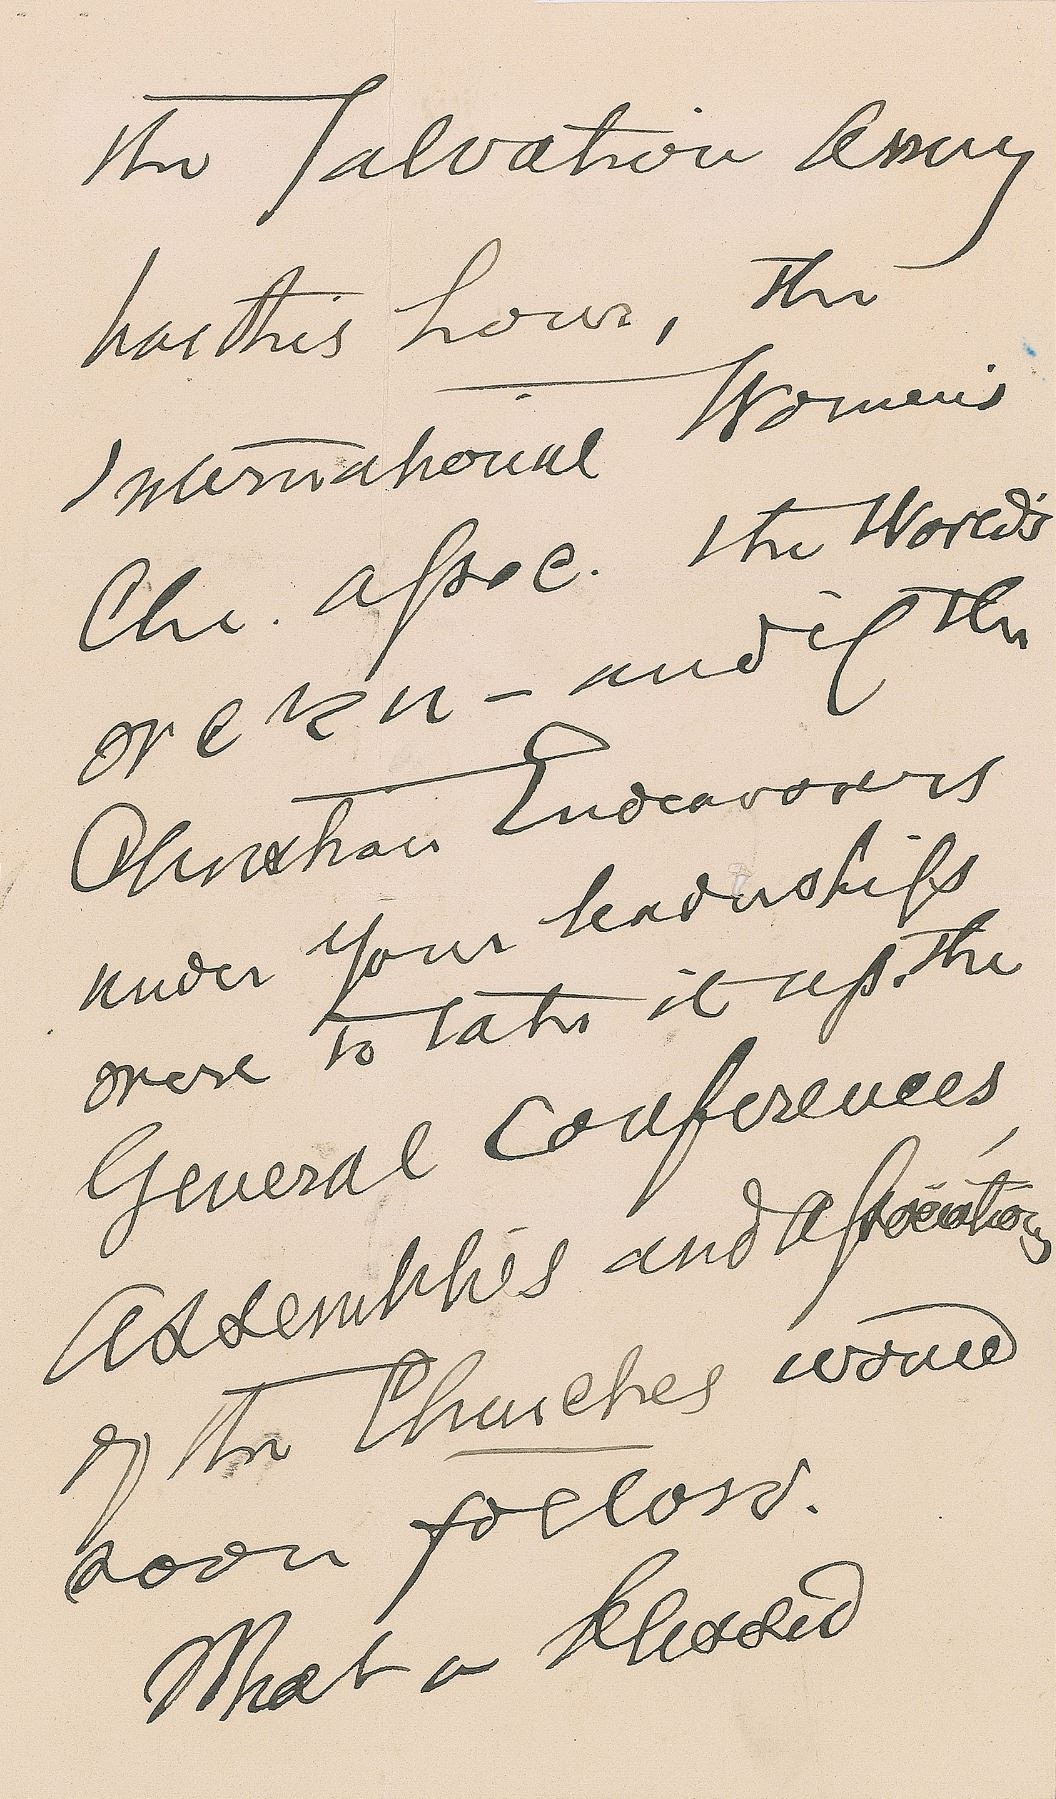 the Salvation Army
has this hour, the
International Women's
Chr. Assoc. the World's
and if the
Christian Endeavorers
under your leadership
were to take it up. The
General Conferences,
Assemblies and Associations
of the Churches would
soon follow.
What a blessed